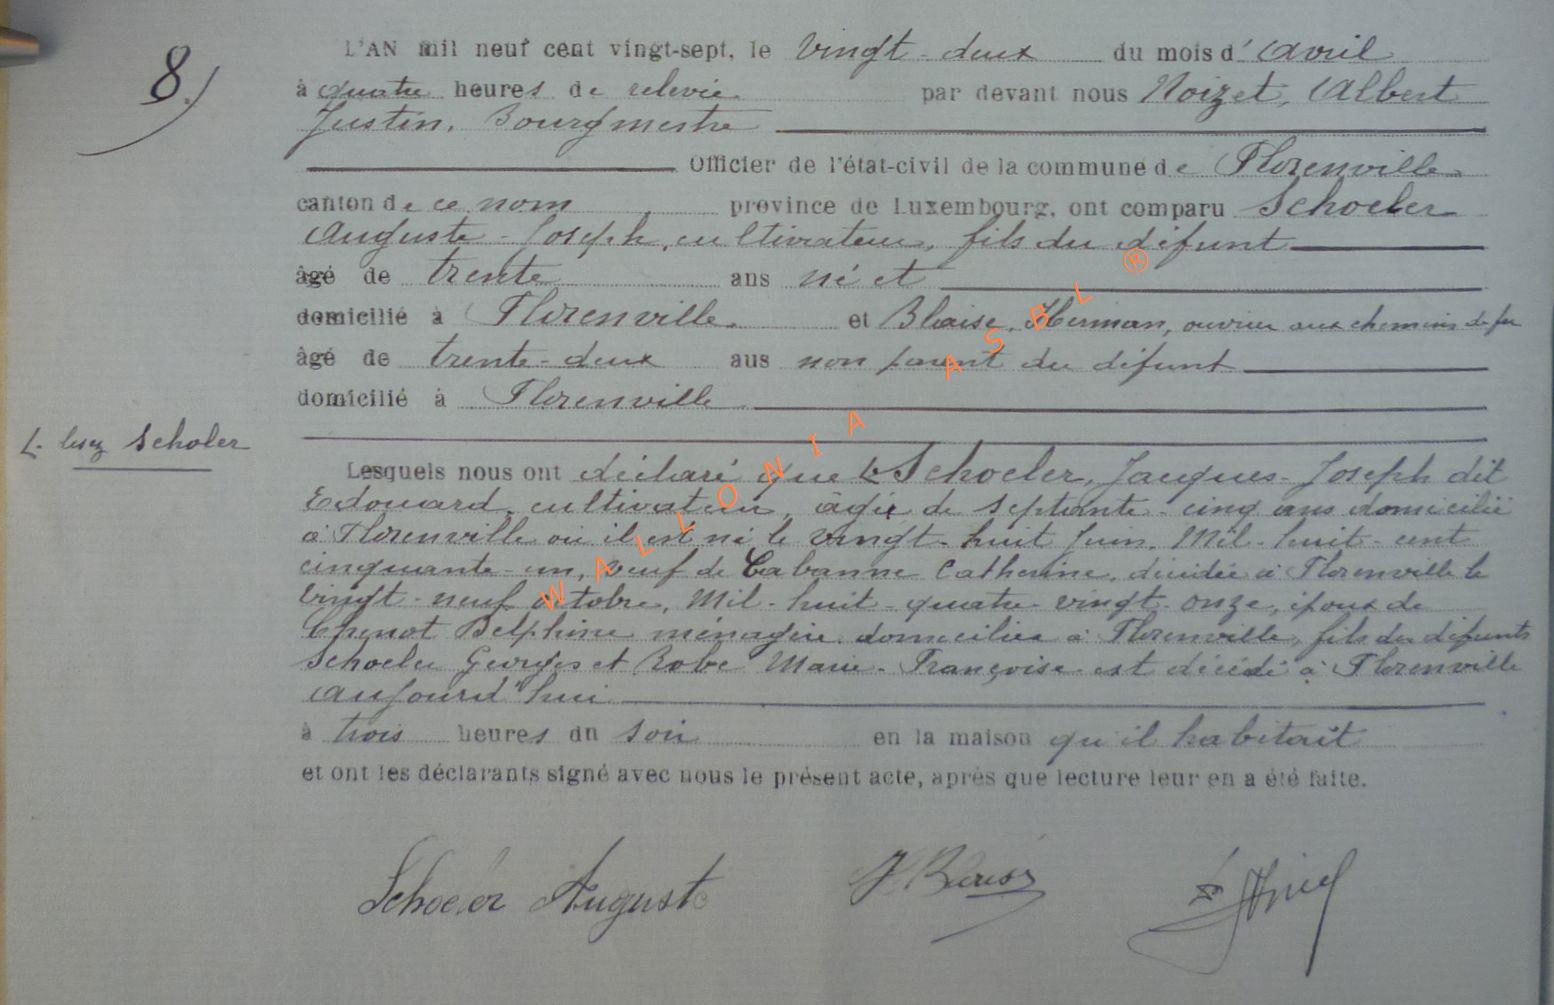 8.)
L'AN mil neuf cent vingt-sept, le Vingt-deux du mois d'avril
à quatre heures de relevée par devant nous Noizet, Albert
Justin, Bourgmestre
Officier de l'état-civil de la commune de Florenville
canton de ce nom province de Luxembourg, ont comparu Schoeler
Auguste-Joseph, cultivateur, fils du défunt
âgé de trente ans né et
domicilié à Florenville et Blaise, Herman, ouvrier aux chemins de fer
âgé de trente-deux ans non parent du défunt
domicilié à Florenville
L. lisez Scholer
Lesquels nous ont déclaré que L Schoeler, Jacques-Joseph dit
Edouard, cultivateur, âgé de septante-cinq ans domicilié
à Florenville où il est né le vingt-huit Juin, Mil-huit-cent
cinquante-un, veuf de Cabanne Catherine, décédée à Florenville le
Vingt-neuf octobre, Mil-huit-quatre-vingt-onze, époux de
Chenot Delphine ménagère domiciliée à Florenville, fils des défunts
Schoeler Georges et Robe Marie-Françoise est décédé à Florenville
aujourd'hui
à trois heures du soir en la maison qu'il habitait
et ont les déclarants signé avec nous le présent acte, après que lecture leur en a été faite.
Schoeler Auguste H Blaise
WALLONIA ASBL ®